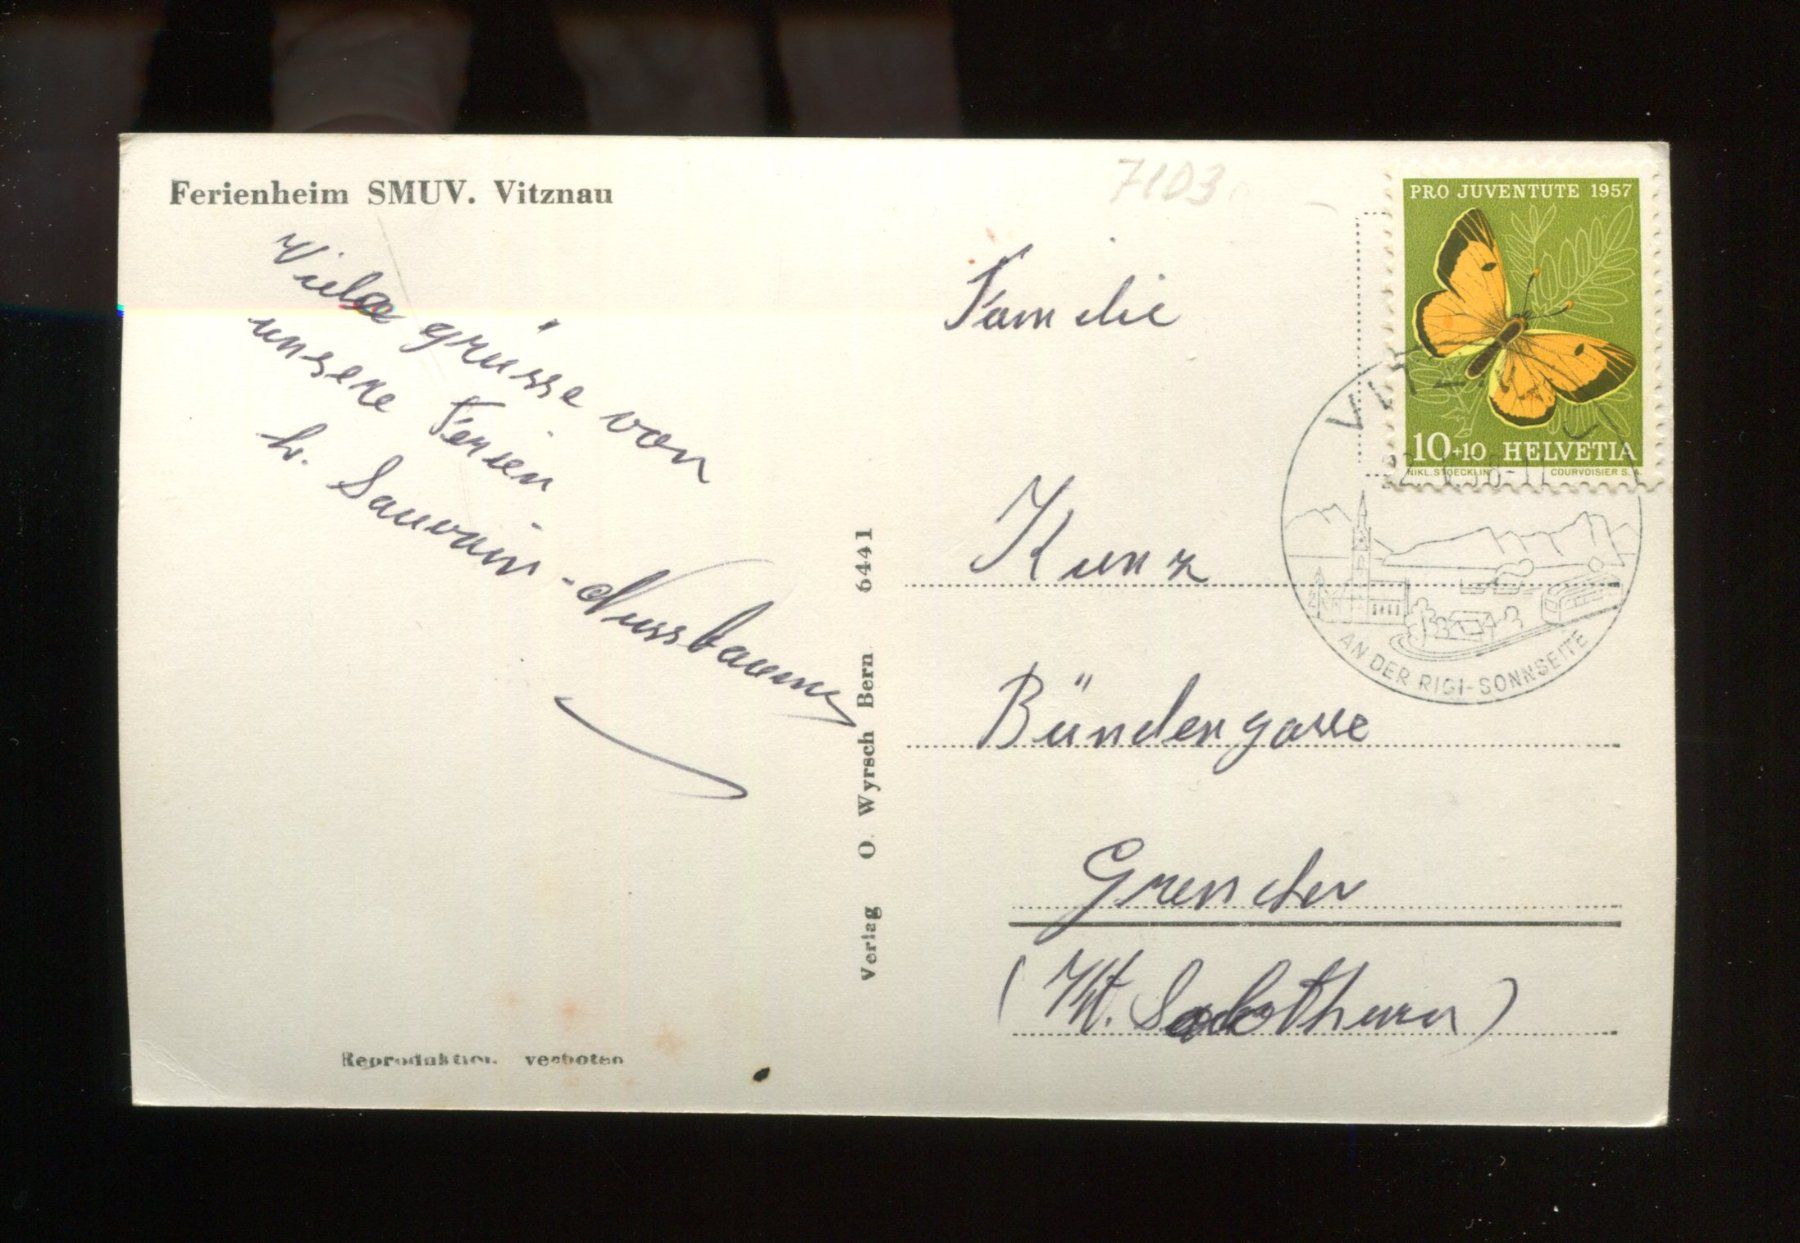 Ferienheim SMUV. Vitznau
7103
Viele grüsse von
unsere Ferien
h. Sauvain-Nussbaumer
Verlag O. Wyrsch Bern 6441
Reproduktion verboten
PRO JUVENTUTE 1957
10+10 HELVETIA
NIKL. STOECKLIN COURVOISIER S.A.
AN DER RIGI-SONNSEITE
Familie
Kunz
Bündengasse
Grenchen
(Kt. Solothurn)